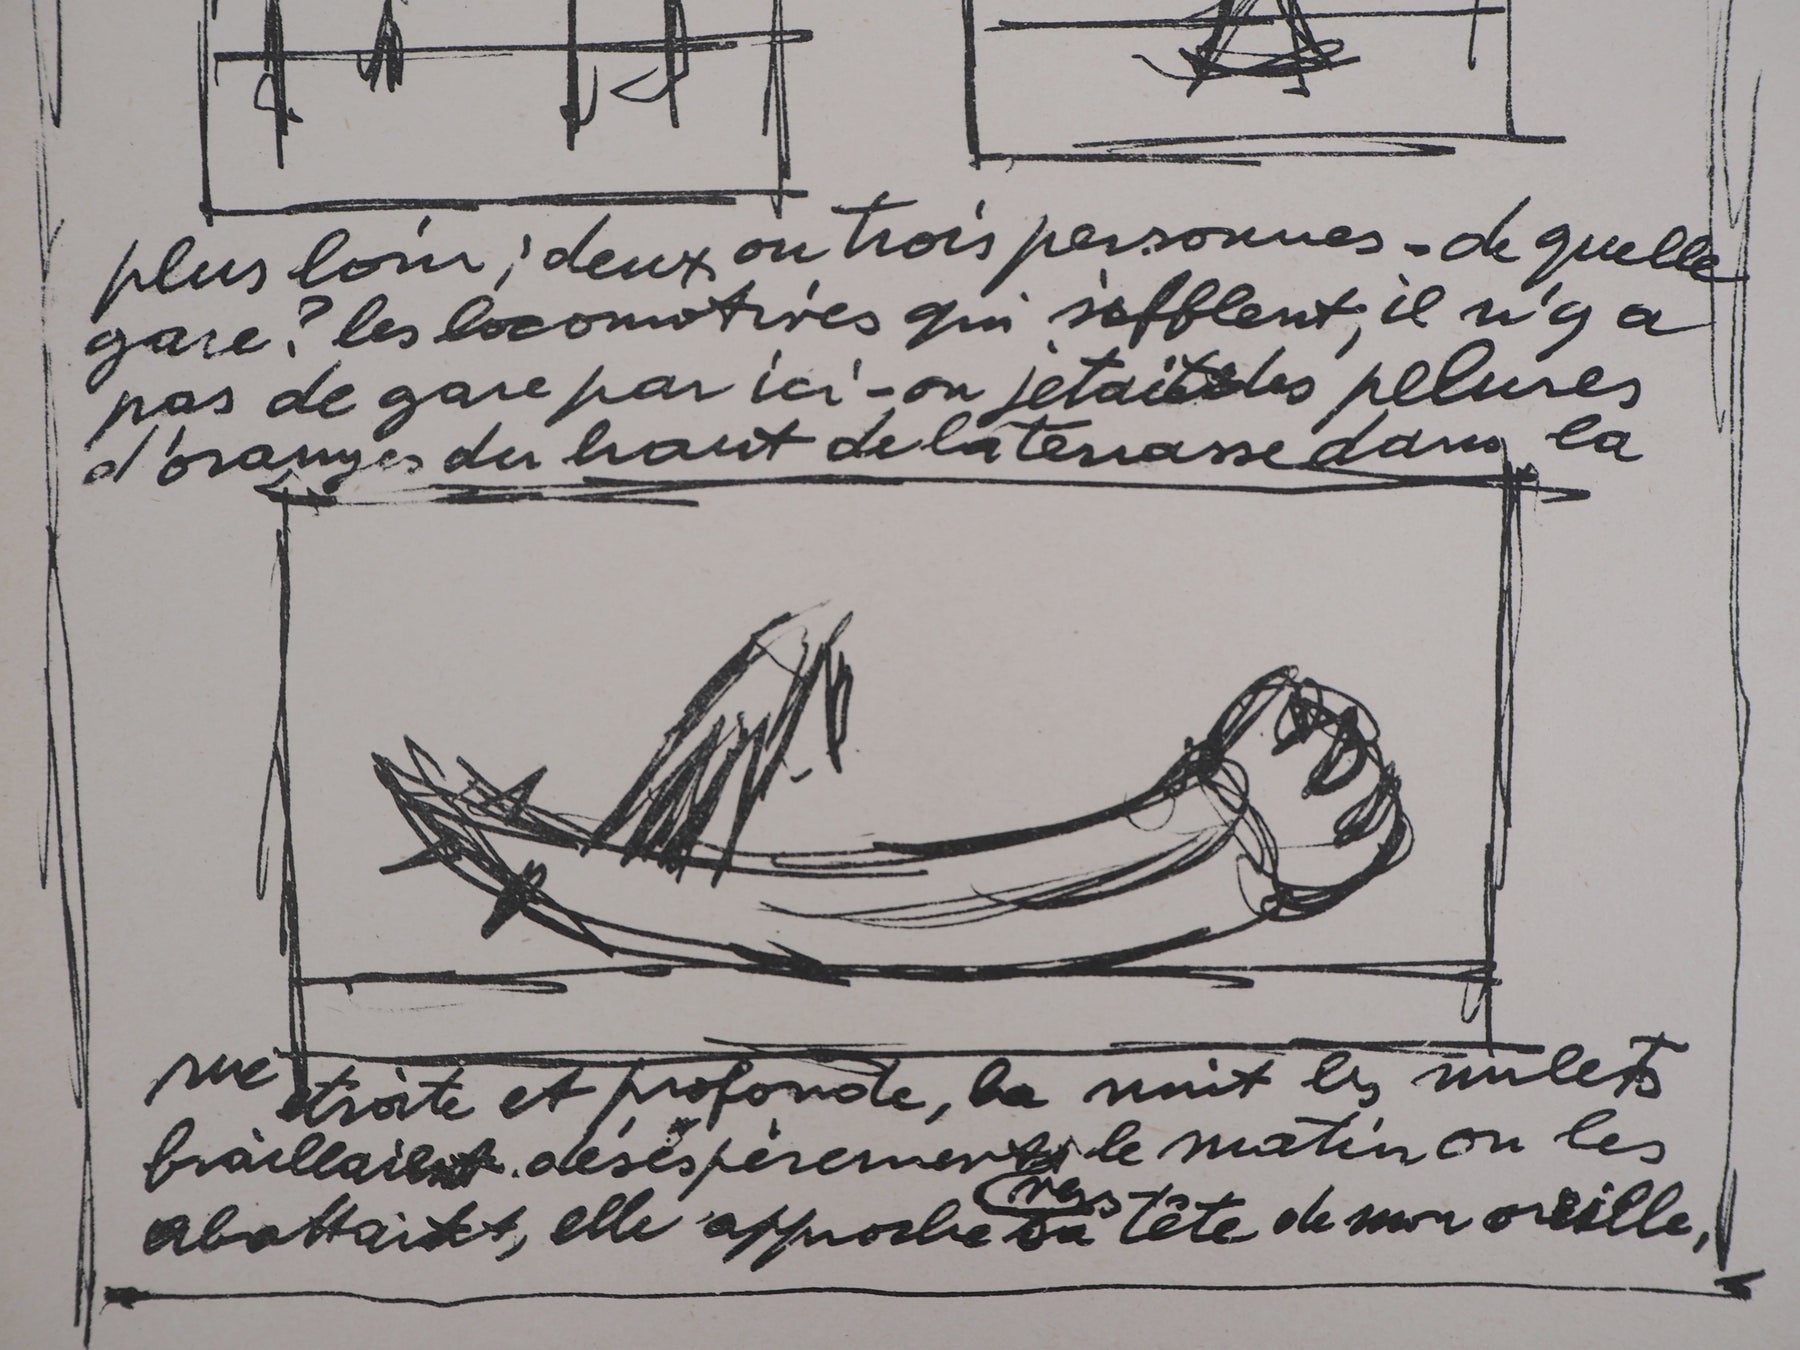 plus loin; deux ou trois personnes - de quelle
gare? les locomotives qui sifflent, il n'y a
pas de gare par ici - on jetait des pelures
d'oranges du haut de la terrasse dans la
rue étroite et profonde, la nuit les mulets
braillaient désespérement le matin on les
abattait, elle approche sa tête de mon oreille,